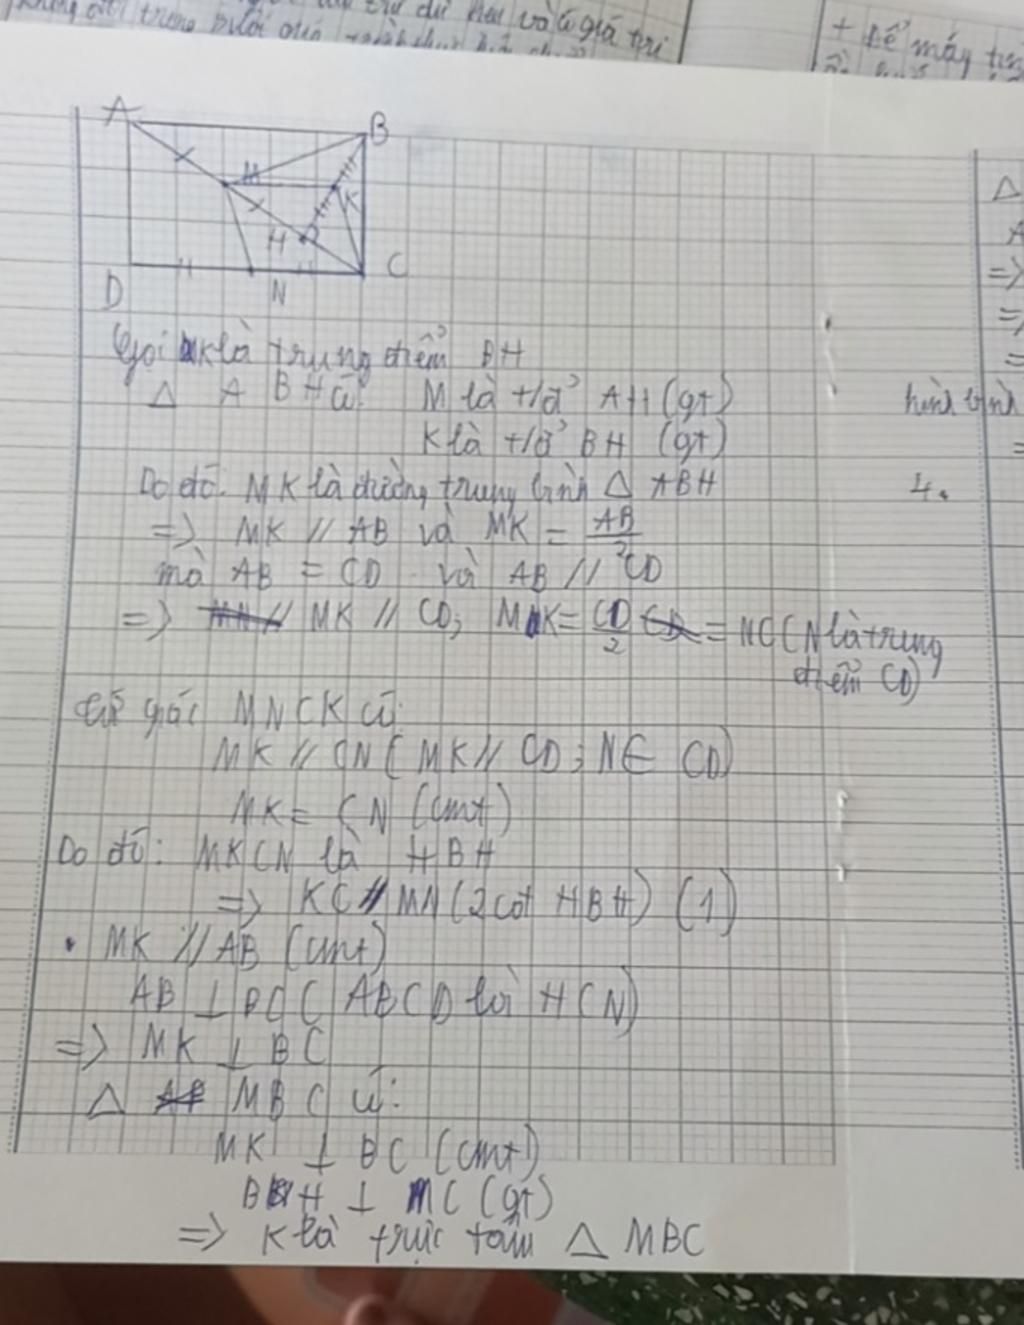 + Để máy
A
B
M
K
H
D
N
C
Gọi K là trung điểm BH
Δ ABH có: M là t/đ AH (gt)
K là t/đ BH (gt)
Do đó: MK là đường trung bình Δ ABH
=> MK // AB và MK = AB/2
mà AB = CD và AB // CD
=> MK // CD; MK = CD/2 = NC (N là trung
điểm CD)
tứ giác MNCK có:
MK // CN (MK // CD; N ∈ CD)
MK = CN (cmt)
Do đó: MKCN là HBH
=> KC // MN (2 cột HBH) (1)
• MK // AB (cmt)
AB ⊥ BC (ABCD là HCN)
=> MK ⊥ BC
Δ MBC có:
MK ⊥ BC (cmt)
BH ⊥ MC (gt)
=> K là trực tâm Δ MBC
Δ
=>
=>
=
hình bình
=
4.